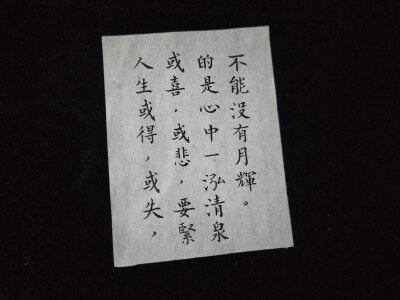 人生或得，或失，
或喜，或悲，要緊
的是心中一泓清泉
不能沒有月輝。